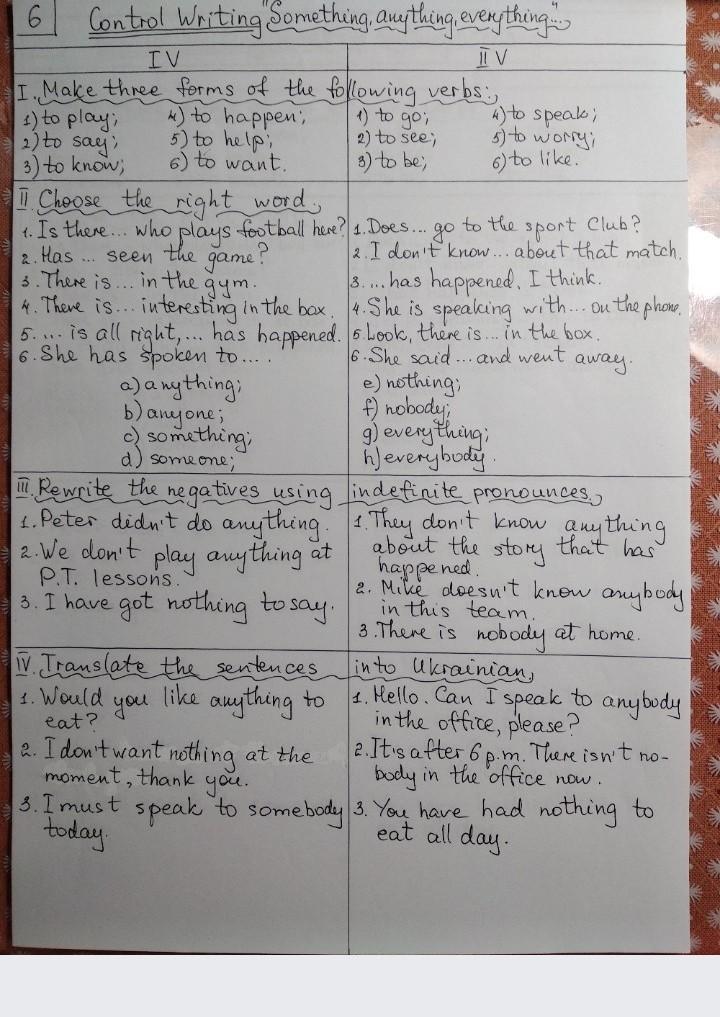 6 Control Writing "Something, anything, everything..."
I V
II V
I. Make three forms of the following verbs:
1) to play; 4) to happen;
2) to say; 5) to help;
3) to know; 6) to want.
1) to go; 4) to speak;
2) to see; 5) to worry;
3) to be; 6) to like.
II Choose the right word.
1. Is there... who plays football here?
2. Has ... seen the game?
3. There is ... in the gym.
4. There is... interesting in the box.
5. ... is all right, ... has happened.
6. She has spoken to... .
a) anything;
b) anyone;
c) something;
d) someone;
1. Does... go to the sport Club?
2. I don't know... about that match.
3. ... has happened, I think.
4. She is speaking with... on the phone.
5. Look, there is... in the box.
6. She said ... and went away.
e) nothing;
f) nobody;
g) everything;
h) everybody.
III. Rewrite the negatives using indefinite pronounces.
1. Peter didn't do anything.
2. We don't play anything at
P.T. lessons.
3. I have got nothing to say.
1. They don't know anything
about the story that has
happened.
2. Mike doesn't know anybody
in this team.
3. There is nobody at home.
IV. Translate the sentences into Ukrainian.
1. Would you like anything to
eat?
2. I don't want nothing at the
moment, thank you.
3. I must speak to somebody
today.
1. Hello. Can I speak to anybody
in the office, please?
2. It's after 6 p.m. There isn't no-
body in the office now.
3. You have had nothing to
eat all day.